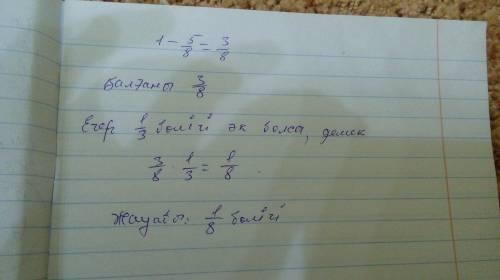 1 - 5/8 = 3/8
Қалғаны 3/8
Егер 1/3 бөлігі ақ болса, демек
3/8 · 1/3 = 1/8
Жауабы: 1/8 бөлігі